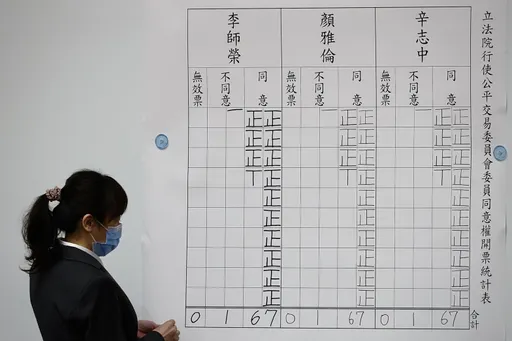 立法院行使公平交易委員會委員同意權開票統計表
辛志中
同意
正正正正正正正正正正
正正正丅
67
不同意
一
1
無效票
0
顏雅倫
同意
正正正正正正正正正正
正正正丅
67
不同意
一
1
無效票
0
李師榮
同意
正正正正正正正正正正
正正正丅
67
不同意
一
1
無效票
0
合計